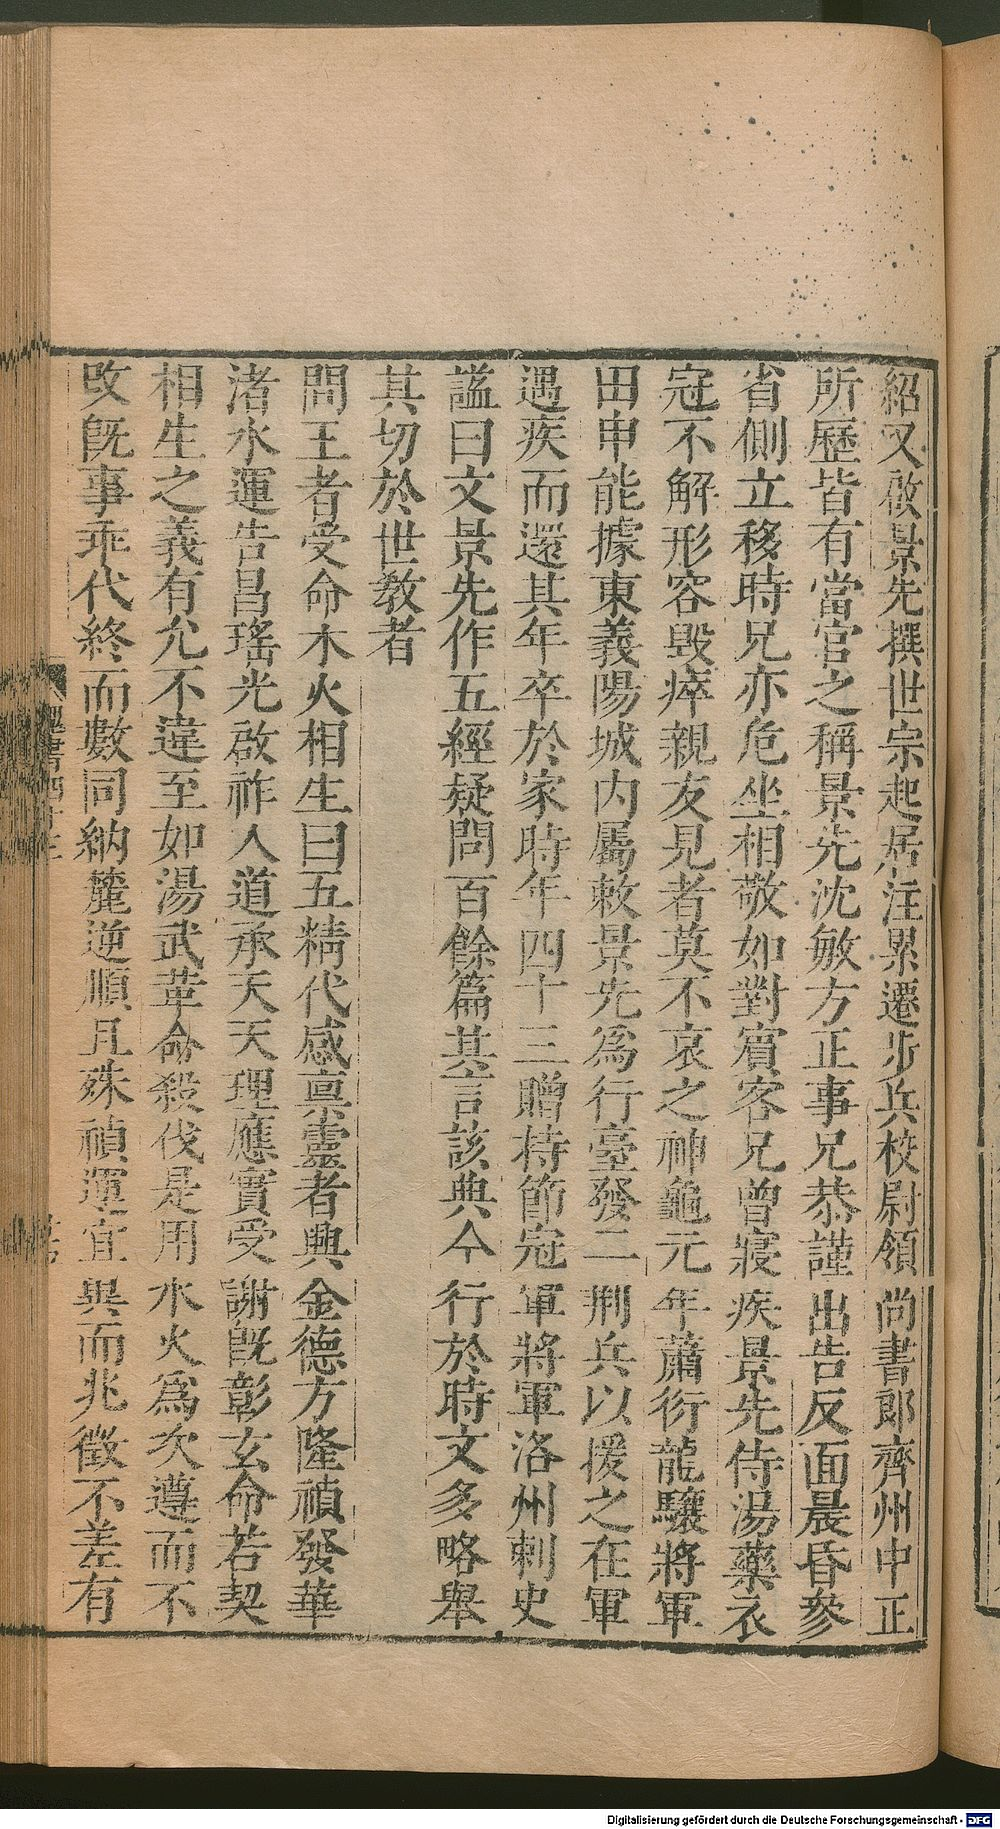 紹又啟景先撰世宗起居注累遷步兵校尉領尚書郎齊州中正
所歷皆有當官之稱景先沈敏方正事兄恭謹出告反面晨昏參
省側立移時兄亦危坐相敬如對賓客兄曾寢疾景先侍湯藥衣
冠不解形容毀瘁親友見者莫不哀之神龜元年蕭衍龍驤將軍
田申能據東義陽城内屬敕景先為行臺發二荆兵以援之在軍
遇疾而還其年卒於家時年四十三贈持節冠軍將軍洛州刺史
謚曰文景先作五經疑問百餘篇其言該典今行於時文多略舉
其切於世教者
問王者受命木火相生曰五精代感稟靈者興金德方隆禎發華
渚水運告昌瑤光啟祚人道承天天理應實受謝既彰玄命若契
相生之義有允不違至如湯武革命殺伐是用水火為次遵而不
改既事乖代終而數同納麓逆順且殊禎運宜異而兆徵不差有
Digitalisierung gefördert durch die Deutsche Forschungsgemeinschaft - DFG